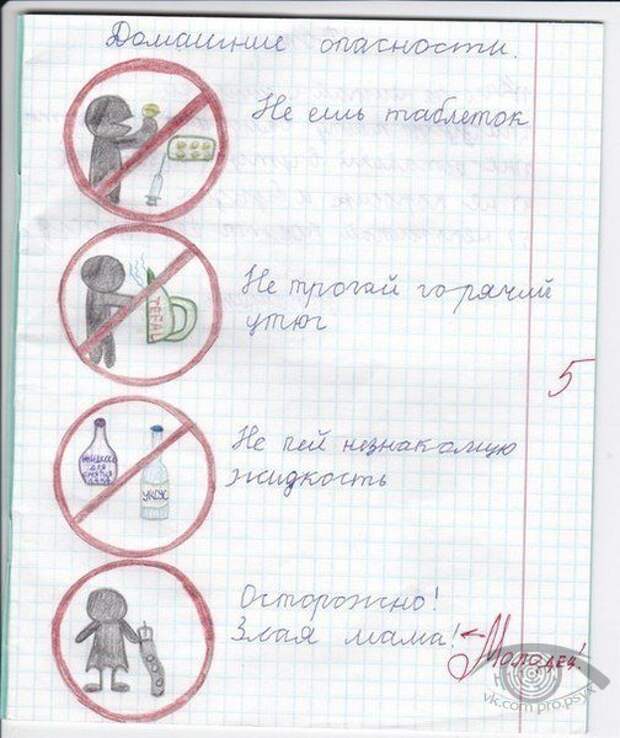 Домашние опасности.
Не ешь таблеток
Не трогай горячий
утюг
TEFAL
5
Не пей незнакомую
жидкость
УКСУС
Осторожно!
Злая мама!
Молодец!
vk.com pro.psyx